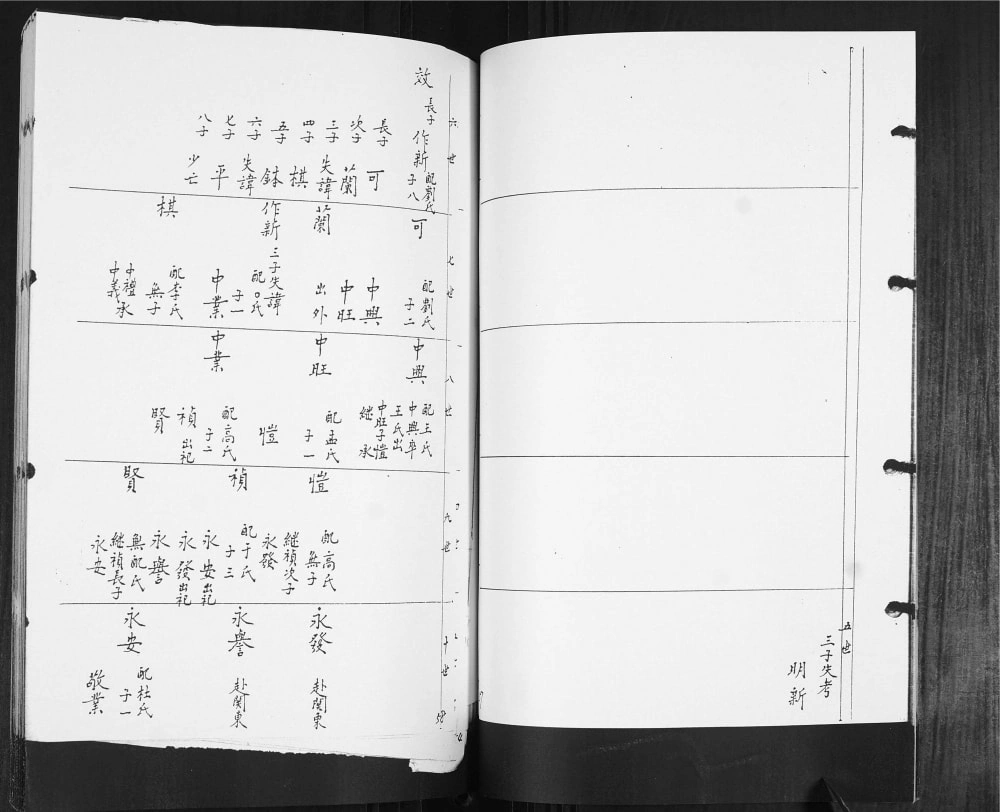 五世
三子失考
明新
六世
效
長子
作新
配劉氏
子八
長子 可
次子 蘭
三子 失諱
四子 棋
五子 鉢
六子 失諱
七子 平
八子 少亡
七世
可
配劉氏
子二
中興
中旺
蘭
出外
作新
三子失諱
配口氏
子一
中業
棋
配李氏
無子
中禮承
中義
八世
中興
配王氏
中興卒
王氏出
中旺子愷
継承
中旺
配孟氏
子一
愷
中業
配高氏
子二
禎 出祀
賢
九世
愷
配高氏
無子
継禎次子
永發
禎
配于氏
子三
永安出祀
永發出祀
永譽
賢
無配氏
継禎長子
永安
十世
永發
赴関東
永譽
赴関東
永安
配杜氏
子一
敬業
58